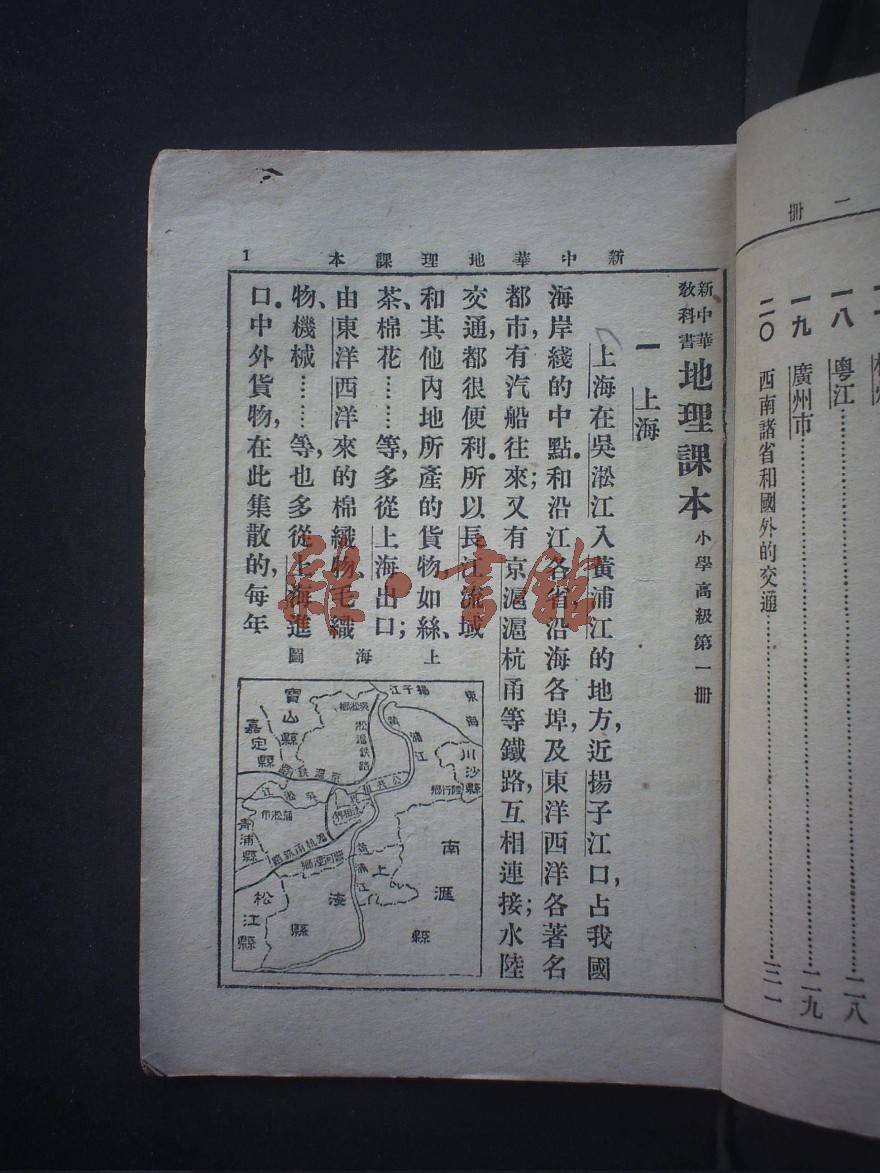 二冊
一八 粵江……二八
一九 廣州市……二九
二〇 西南諸省和國外的交通……三一
新中華地理課本 1
新中華教科書 地理課本 小學高級第一冊
一 上海
上海在吳淞江入黃浦江的地方,近揚子江口,占我國
海岸綫的中點。和沿江各省,沿海各埠,及東洋西洋各著名
都市,有汽船往來;又有京滬滬杭甬等鐵路,互相連接;水陸
交通,都很便利。所以長江流域
和其他內地所產的貨物,如絲、
茶、棉花……等,多從上海出口;
由東洋西洋來的棉織物、毛織
物、機械……等,也多從上海進
口。中外貨物,在此集散的,每年
上海圖
揚子江
東海
寶山縣
吳淞鄉
淞滬鐵路
黃浦江
川沙縣
嘉定縣
京滬鐵路
公共租界
陸行鄉
吳淞江
法租界
蒲淞市
青浦縣
滬杭甬鐵路
漕河涇鄉
黃浦江
上海縣
南滙縣
松江縣
雜·書館